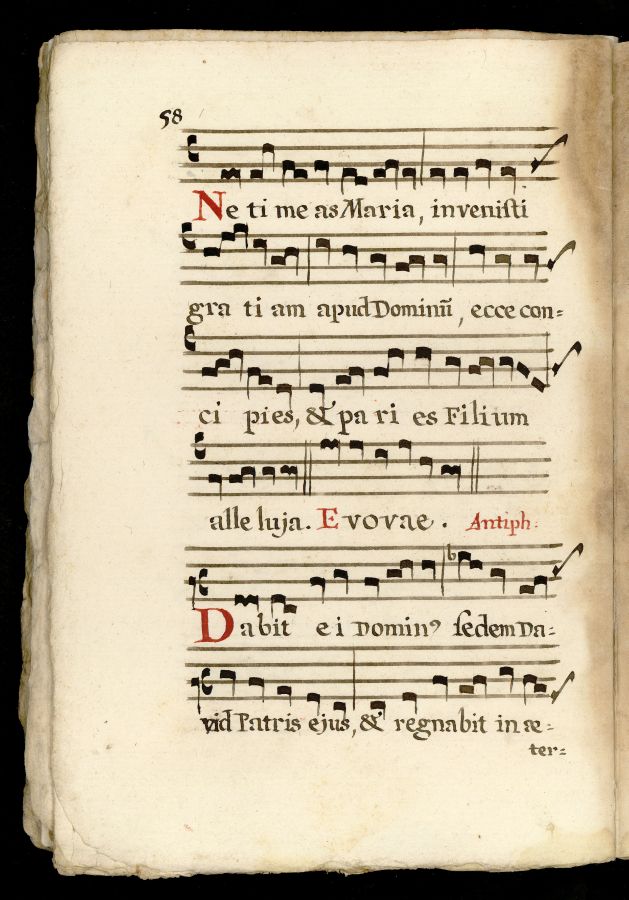 58
Ne ti me as Maria, invenisti
gra ti am apud Dominū, ecce con=
ci pies, & pa ri es Filium
alle luja. E vovae. Antiph:
Dabit ei Domin⁹ sedem Da=
vid Patris ejus, & regnabit in æ=
ter=